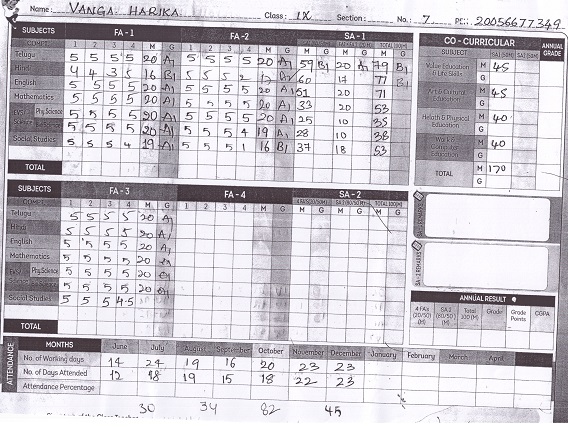 Name: VANGA HARIKA Class: IX Section: No.: 7 PE: 20056677349
SUBJECTS FA-1 FA-2 SA-1
1 2 3 4 M G 1 2 3 4 M G M G M G M G
Telugu 5 5 5 5 20 A1 5 5 5 5 20 A1 59 B1 20 A1 79 B1
Hindi 4 4 3 5 16 B1 5 5 5 2 17 60 17 77 B1
English 5 5 5 5 20 A1 5 5 5 5 20 A1 51 20 71
Mathematics 5 5 5 5 20 A1 5 5 5 5 20 A1 33 20 53
Phy.Science 5 5 5 5 20 A1 5 5 5 5 20 A1 25 10 35
5 5 5 5 20 A1 5 5 5 4 19 A1 28 10 38
Social Studies 5 5 5 4 19 A1 5 5 5 1 16 B1 37 18 53
TOTAL
CO-CURRICULAR ANNUAL GRADE
SUBJECT SA1 (50M) SA1 (50M)
Value Education & Life Skills M 45
G
Art & Cultural Education M 45
G
Helath & Physical Education M 40
G
Work & Computer Education M 40
G
TOTAL M 170
G
SUBJECTS FA-3 FA-4 SA-2
1 2 3 4 M G 1 2 3 4 M G M G M G M G
Telugu 5 5 5 5 20 A1
Hindi 5 5 5 5 20 A1
English 5 5 5 5 20 A1
Mathematics 5 5 5 5 20
Phy.Science 5 5 5 5 20
5 5 5 5 20 A1
Social Studies 5 5 5 4.5
TOTAL
SA-2 REMARKS
ANNUAL RESULT
4 FA's (20/50) (M) SA 2 (80/50) (M) Total 100 (M) Grade Grade Points CGPA
ATTENDANCE
MONTHS June July August September October November December January February March April
No. of Working days 14 24 19 16 20 23 23
No. of Days Attended 12 18 19 15 18 22 23
Attendance Percentage
30 34 82 45